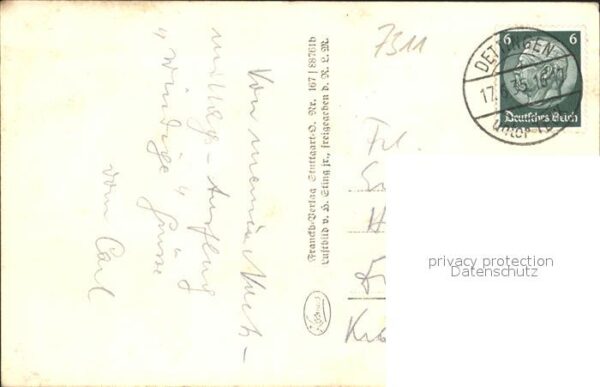 Von meinem Nach-
mittags-Ausflug
"windige" Grüsse
vom Carl
Franckh-Verlag Stuttgart-O. Nr. 167/88761b
Luftbild v. H. Sting jr., freigegeben d. R. L. M.
Kosmos
7311
6 6
Deutsches Reich
DETTINGEN
17. 35. 16
Frl.
privacy protection
Datenschutz